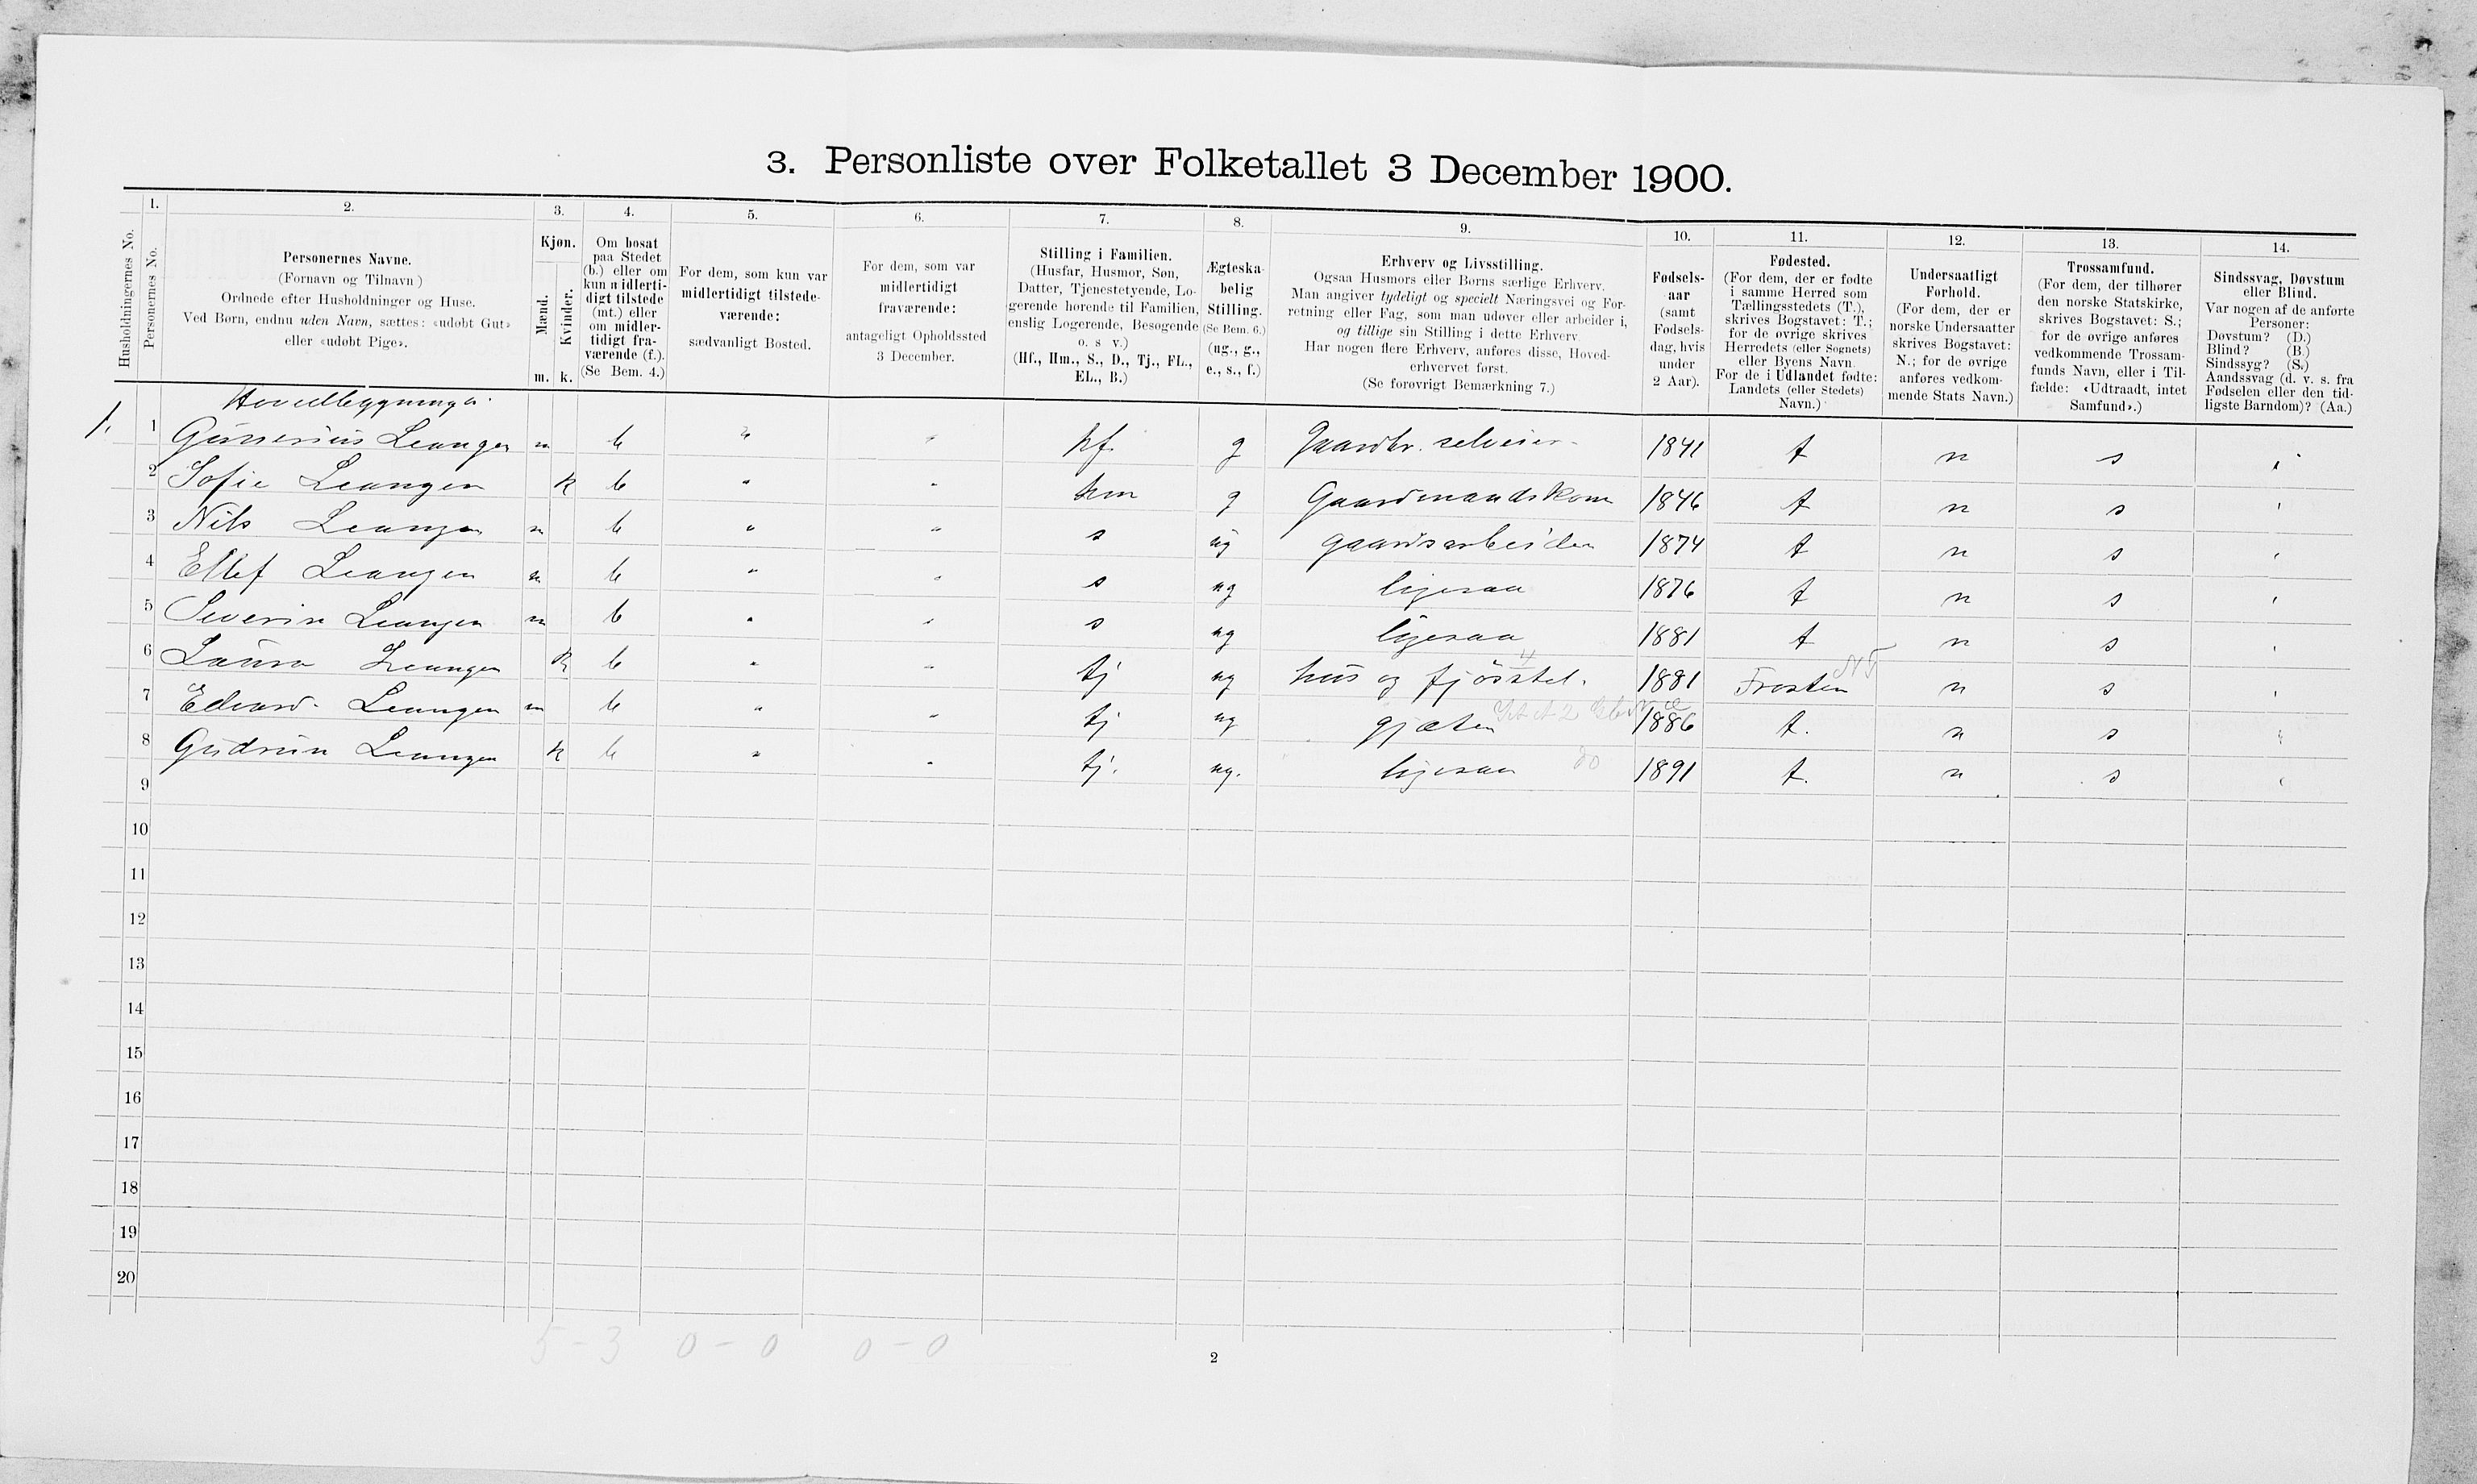 3. Personliste over Folketallet 3 December 1900.
Husholdningernes No.
1.
Personernes No.
2.
Personernes Navne.
(Fornavn og Tilnavn)
Ordnede efter Husholdninger og Huse.
Ved Børn, endnu uden Navn, sættes: «udøbt Gut»
eller «udøbt Pige».
3.
Kjøn.
Mænd.
Kvinder.
m. k.
4.
Om bosat
paa Stedet
(b.) eller om
kun midlerti-
digt tilstede
(mt.) eller
om midler-
tidigt fra-
værende (f.).
(Se Bem. 4.)
5.
For dem, som kun var
midlertidigt tilstede-
værende:
sædvanligt Bosted.
6.
For dem, som var
midlertidigt
fraværende:
antageligt Opholdssted
3 December.
7.
Stilling i Familien.
(Husfar, Husmor, Søn,
Datter, Tjenestetyende, Lo-
gerende hørende til Familien,
enslig Logerende, Besøgende
o. s v.)
(Hf., Hm., S., D., Tj., FL.,
EL., B.)
8.
Ægteska-
belig
Stilling.
(Se Bem. 6.)
(ug., g.,
e., s., f.)
9.
Erhverv og Livsstilling.
Ogsaa Husmors eller Børns særlige Erhverv.
Man angiver tydeligt og specielt Næringsvei og For-
retning eller Fag, som man udøver eller arbeider i,
og tillige sin Stilling i dette Erhverv.
Har nogen flere Erhverv, anføres disse, Hoved-
erhvervet først.
(Se forøvrigt Bemærkning 7.)
10.
Fødsels-
aar
(samt
Fødsels-
dag, hvis
under
2 Aar).
11.
Fødested.
(For dem, der er fødte
i samme Herred som
Tællingsstedets (T.),
skrives Bogstavet: T.;
for de øvrige skrives
Herredets (eller Sognets)
eller Byens Navn.
For de i Udlandet fødte:
Landets (eller Stedets)
Navn.)
12.
Undersaatligt
Forhold.
(For dem, der er
norske Undersaatter
skrives Bogstavet:
N.; for de øvrige
anføres vedkom-
mende Stats Navn.)
13.
Trossamfund.
(For dem, der tilhører
den norske Statskirke,
skrives Bogstavet: S.;
for de øvrige anføres
vedkommende Trossam-
funds Navn, eller i Til-
fælde: «Udtraadt, intet
Samfund».)
14.
Sindssvag, Døvstum
eller Blind.
Var nogen af de anførte
Personer:
Døvstum? (D.)
Blind? (B.)
Sindssyg? (S.)
Aandssvag (d. v. s. fra
Fødselen eller den tid-
ligste Barndom)? (Aa.)
Hovedbygninga.
1. 1 Gunerius Leangen m b " " hf. g Gaardbr. selveier 1841 t n s
2 Sofie Leangen k b " " hm g Gaardmandskone 1846 t n s
3 Nils Leangen m b " " s ug gaardsarbeider 1874 t n s
4 Ellef Leangen m b " " s ug ligesaa 1876 t n s
5 Severin Leangen m b " " s ug ligesaa 1881 t n s
6 Laura Leangen k b " " tj ug hus og fjösstel. 4 1881 Frosten NT n s
7 Edvard Leangen m b " " tj ug gjæter 1886 t. n s
8 Gudrun Leangen k b " " tj. ug. ligesaa do 1891 t. n s
9
10
11
12
13
14
15
16
17
18
19
20
5 - 3 0 - 0 0 - 0
2